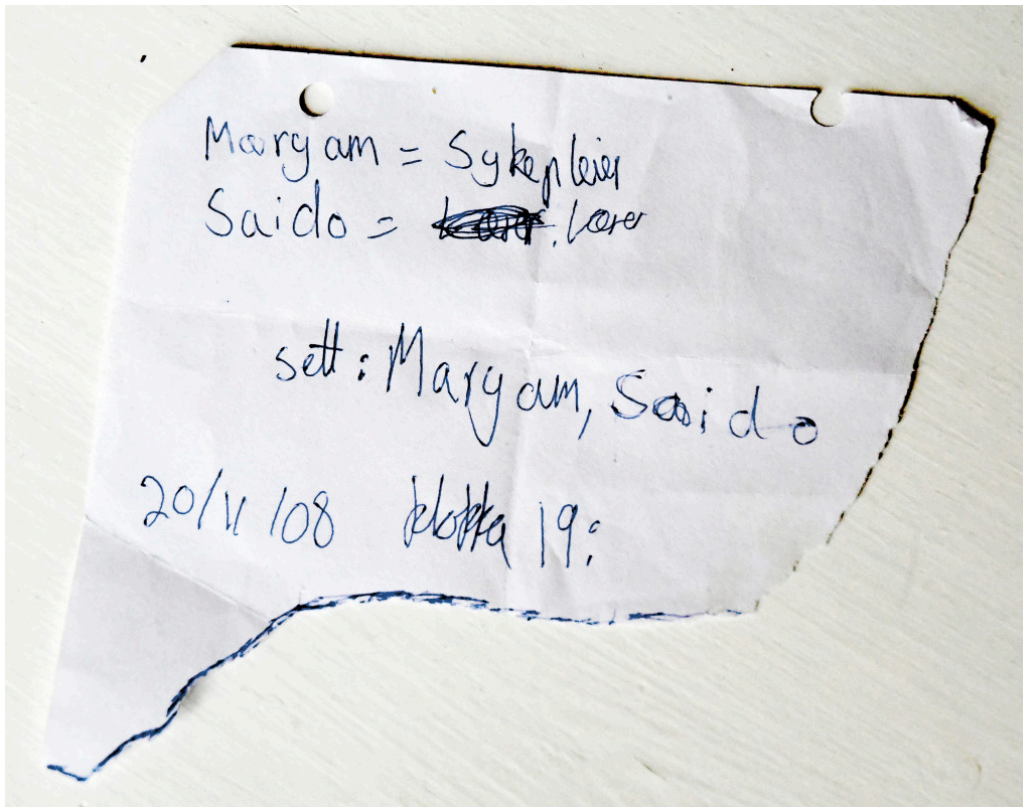 Maryam = Sykepleier
Saido = Lærer
sett: Maryam, Saido
20/11/08 klokka 19: